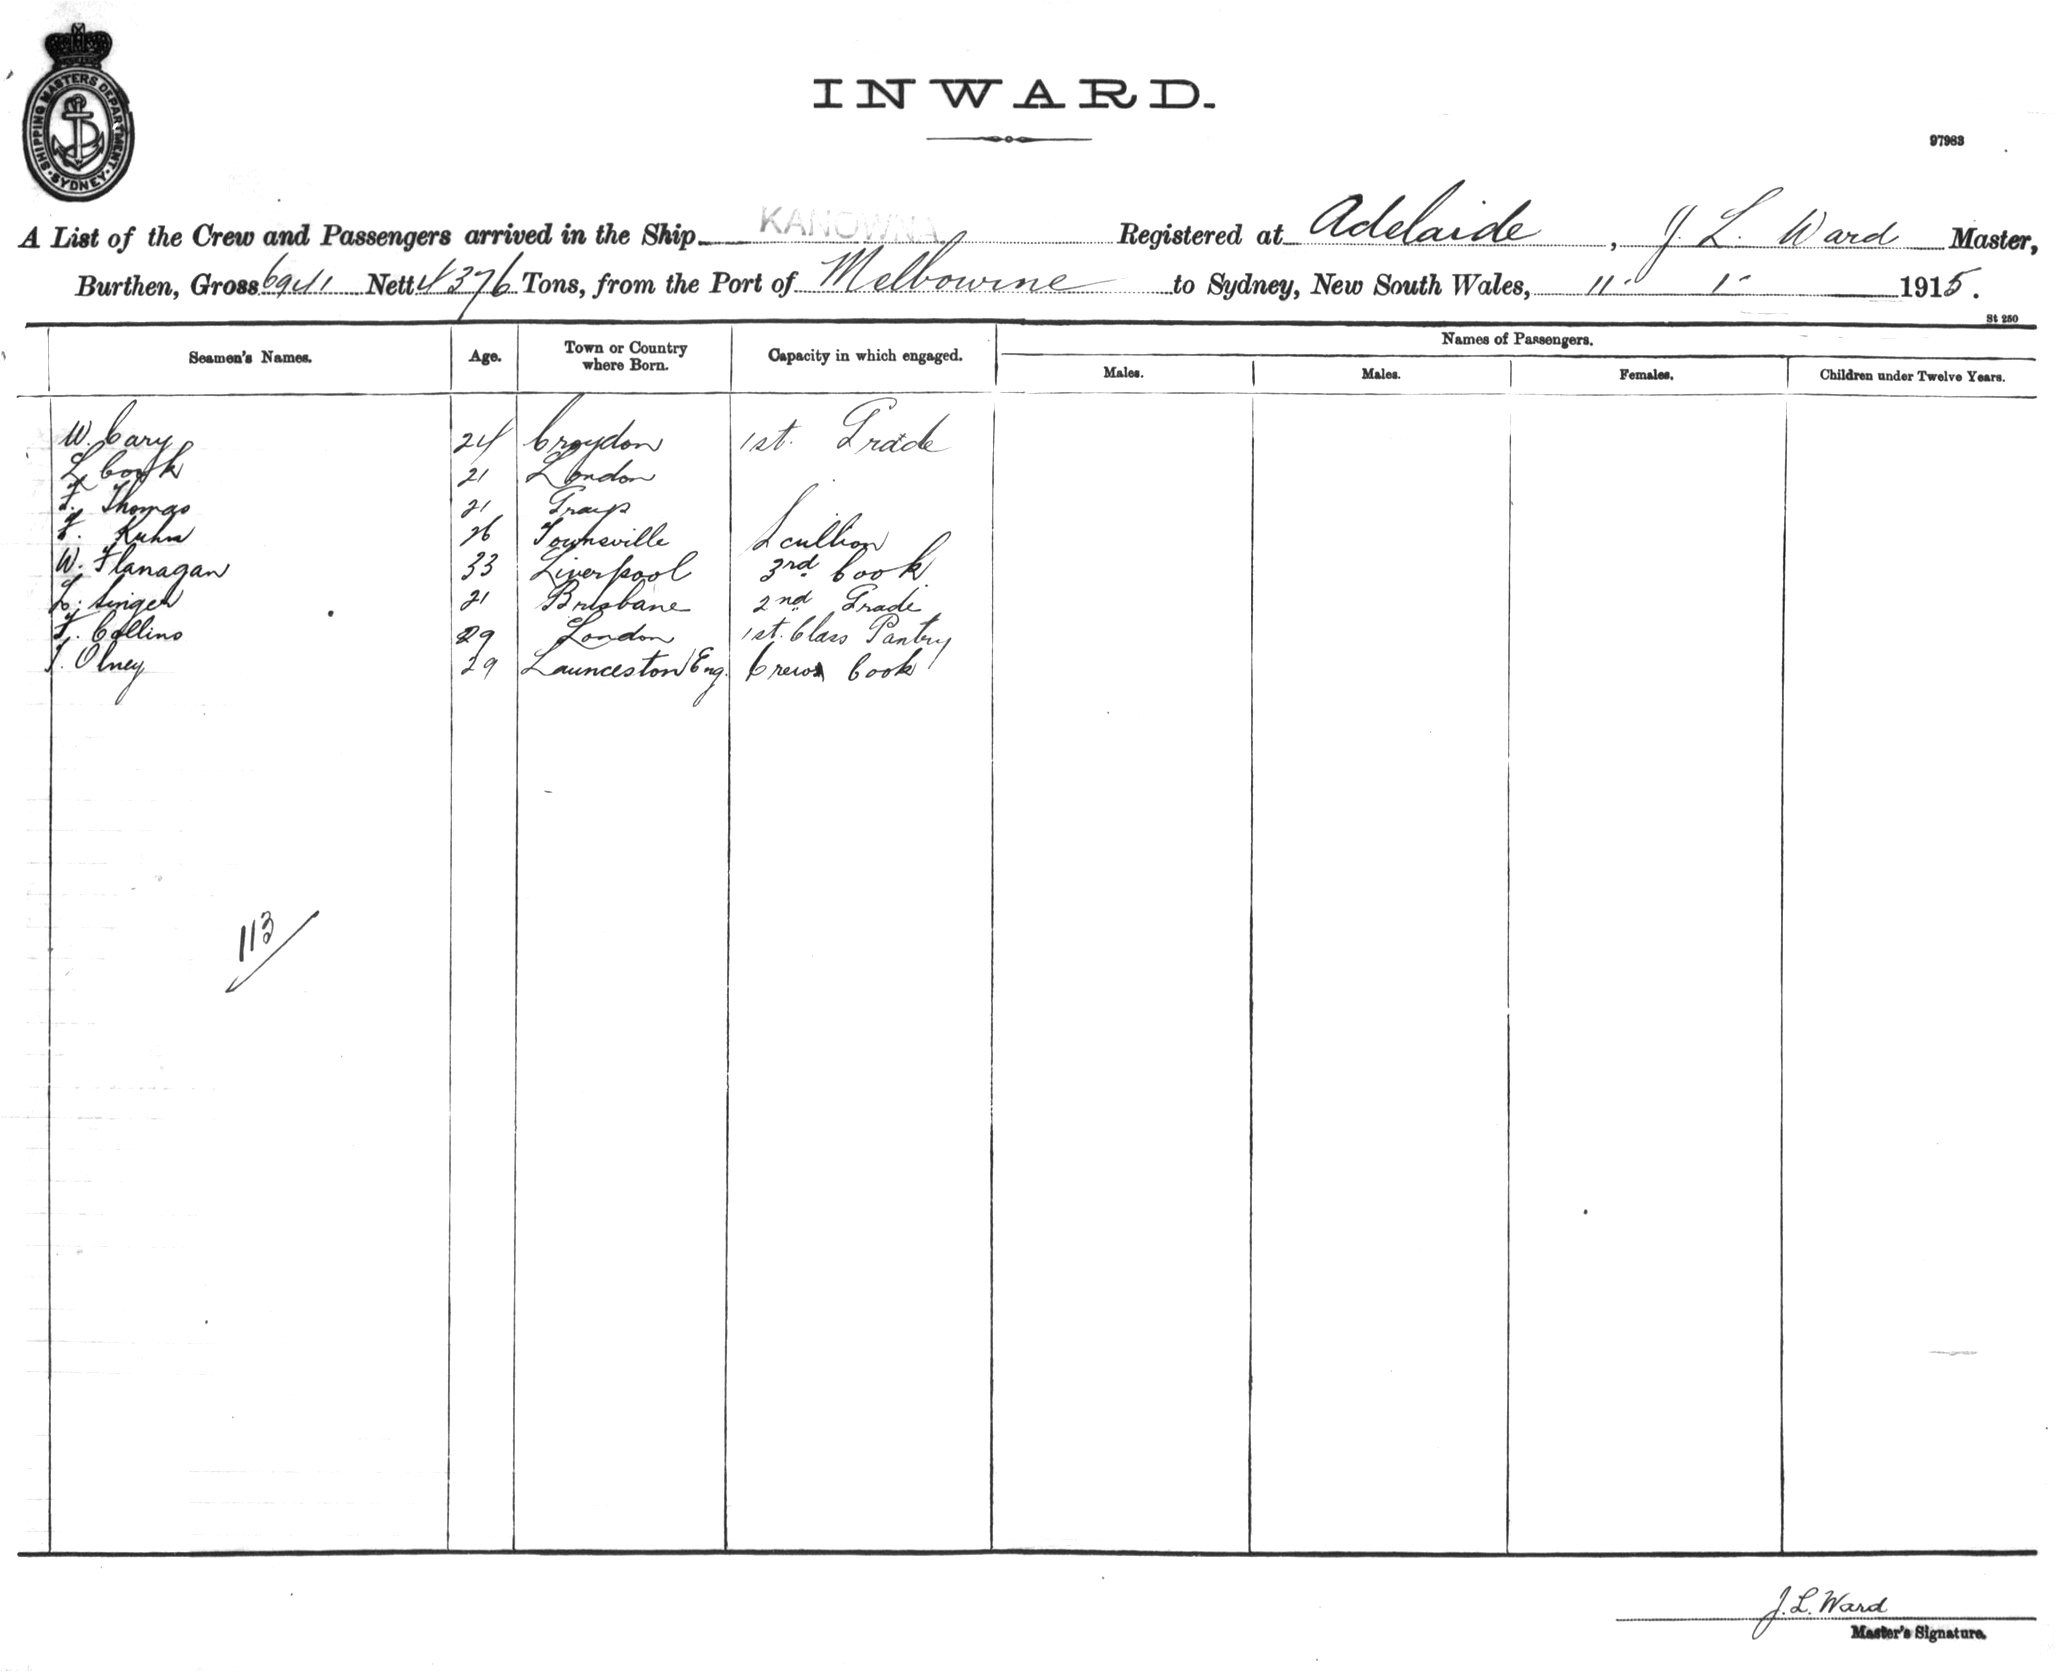 SHIPPING MASTERS DEPARTMENT
SYDNEY
INWARD.
97983
A List of the Crew and Passengers arrived in the Ship KANOWNA Registered at Adelaide, J. L. Ward Master,
Burthen, Gross 6941 Nett 4376 Tons, from the Port of Melbourne to Sydney, New South Wales, 11 - 1 - 1915.
St 250
Names of Passengers.
Seamen's Names. Age. Town or Country where Born. Capacity in which engaged. Males. Males. Females. Children under Twelve Years.
W. Cary 24 Croydon 1st. Grade
L Cook 21 London
F. Thomas 21 Grays
F. Kuhn 26 Townsville Scullion
W. Flanagan 33 Liverpool 3rd Cook
L. Singer 21 Brisbane 2nd Grade
F. Collins 29 London 1st. Class Pantry
J. Olney 29 Launceston Eng. Crews Cook
113
J. L. Ward
Master's Signature.